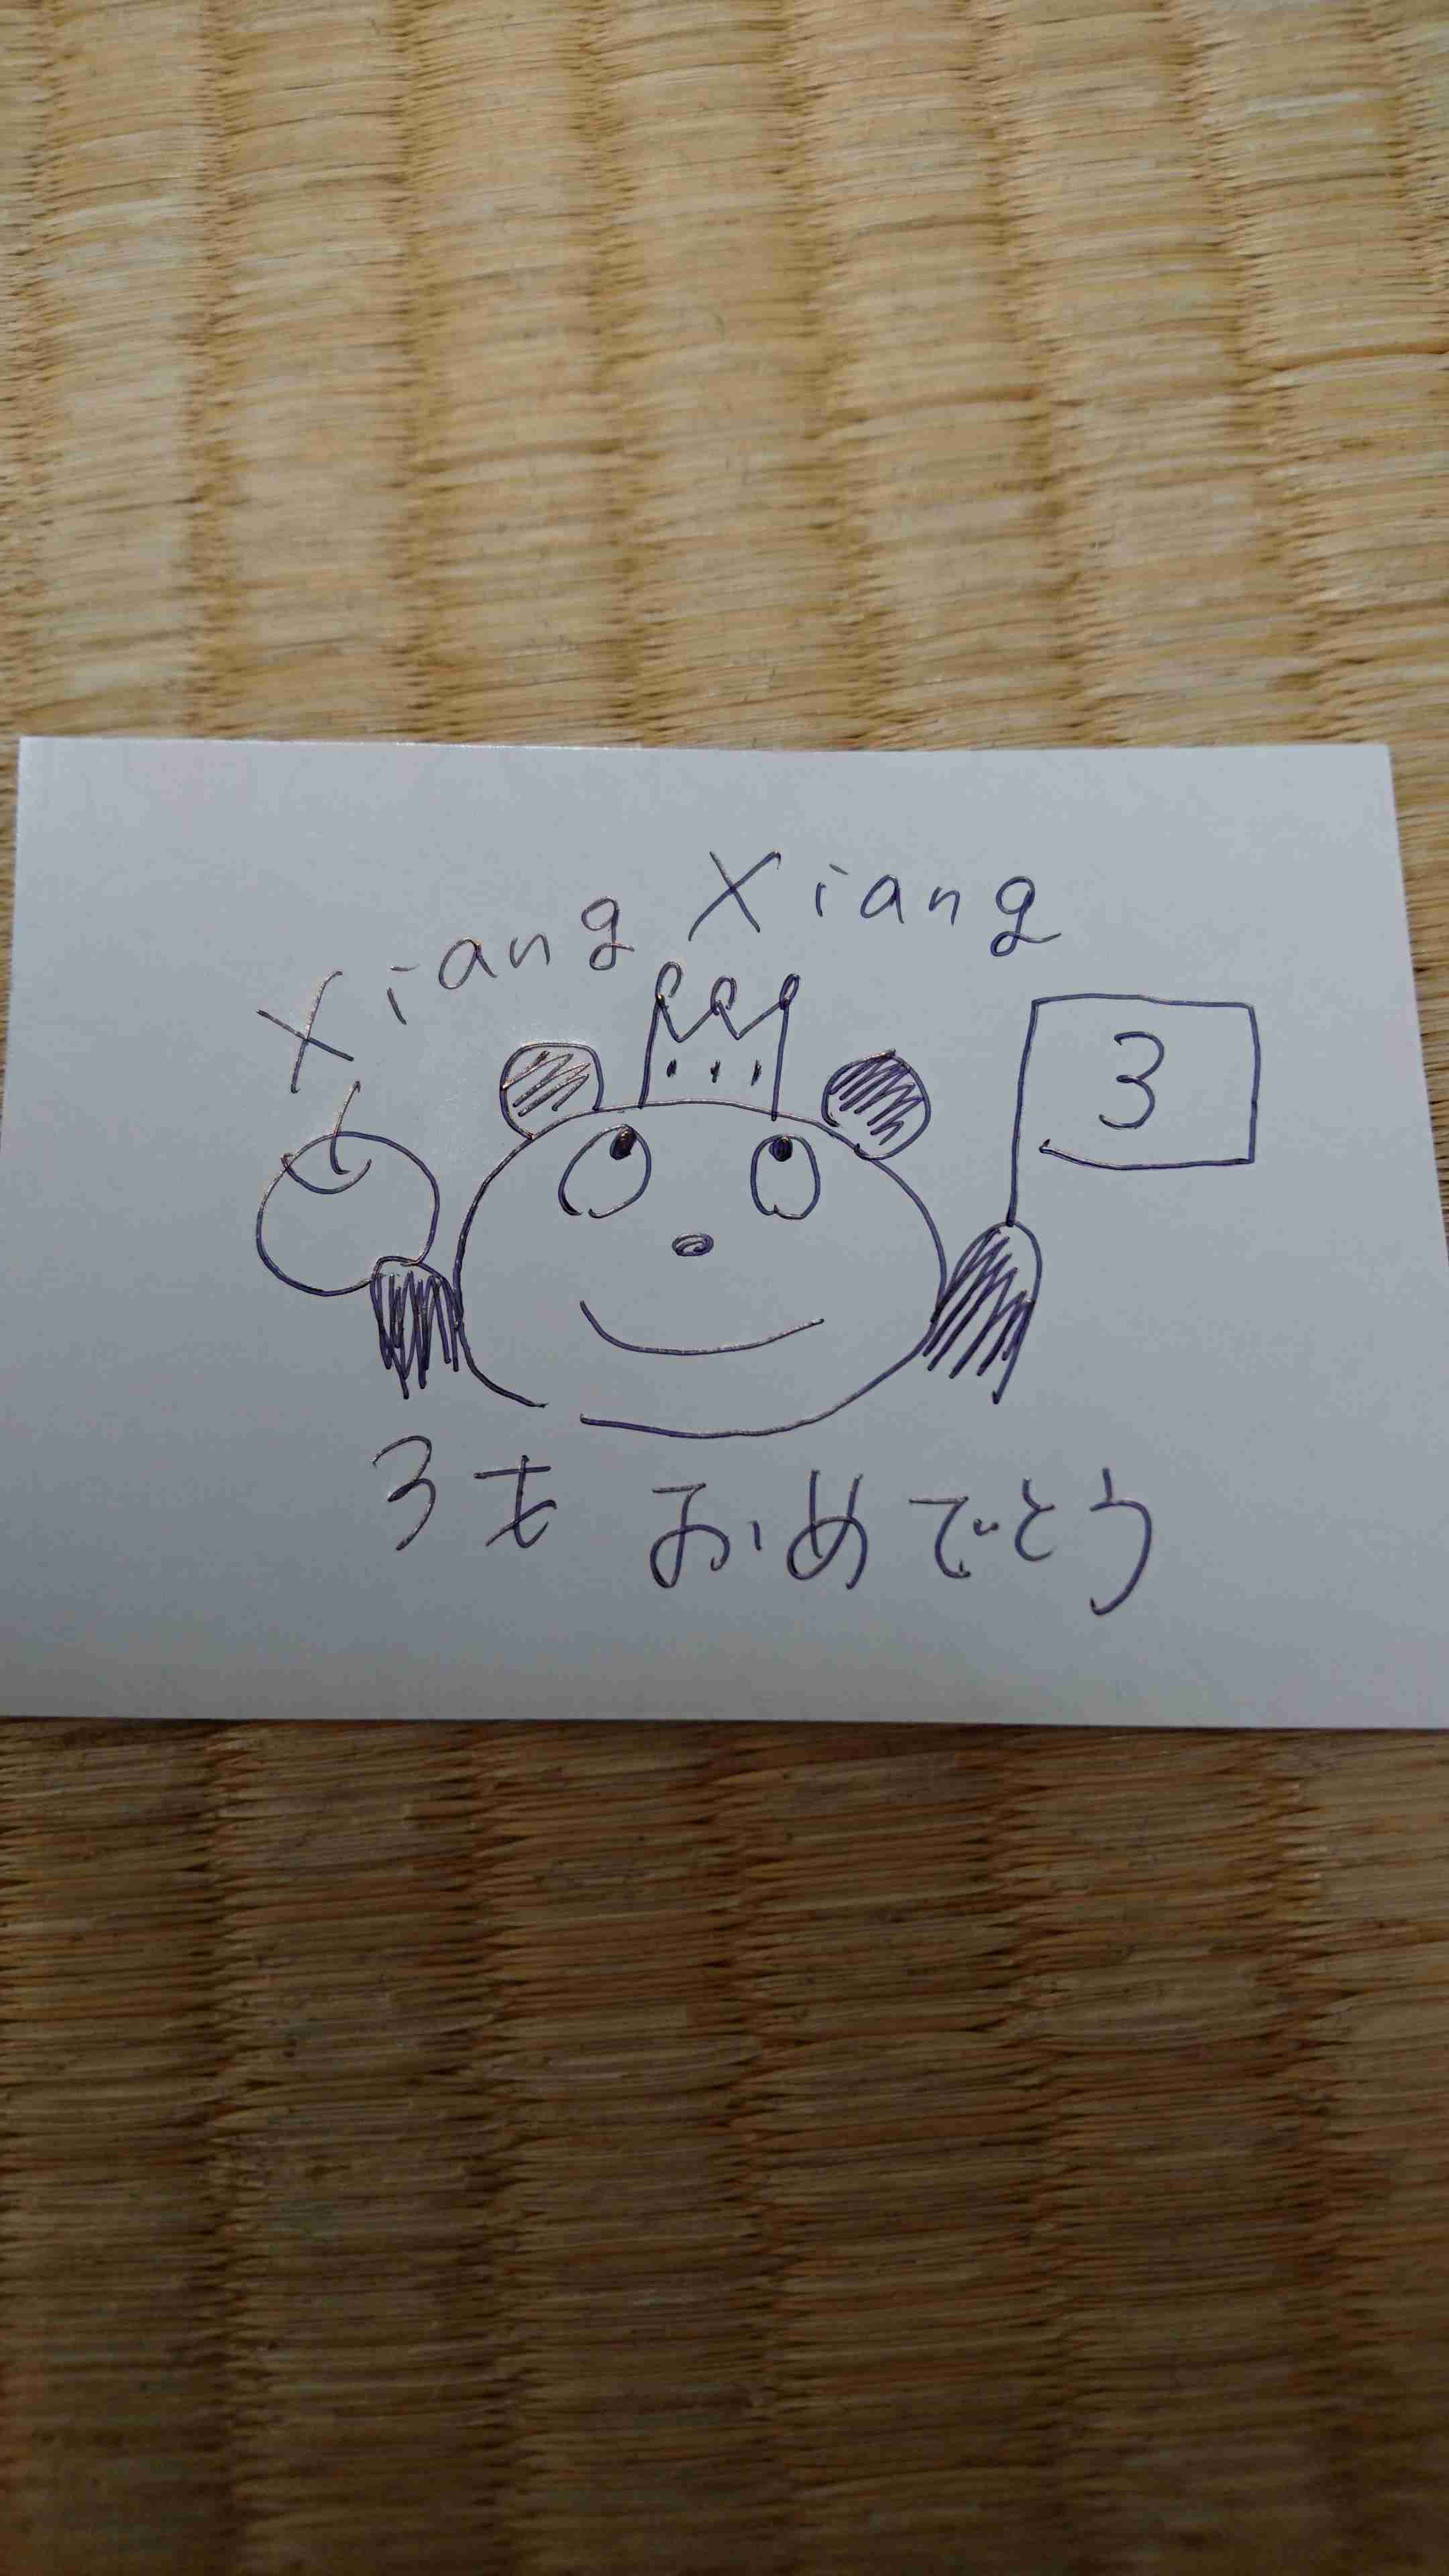 Xiang Xiang
3
3才 おめでとう